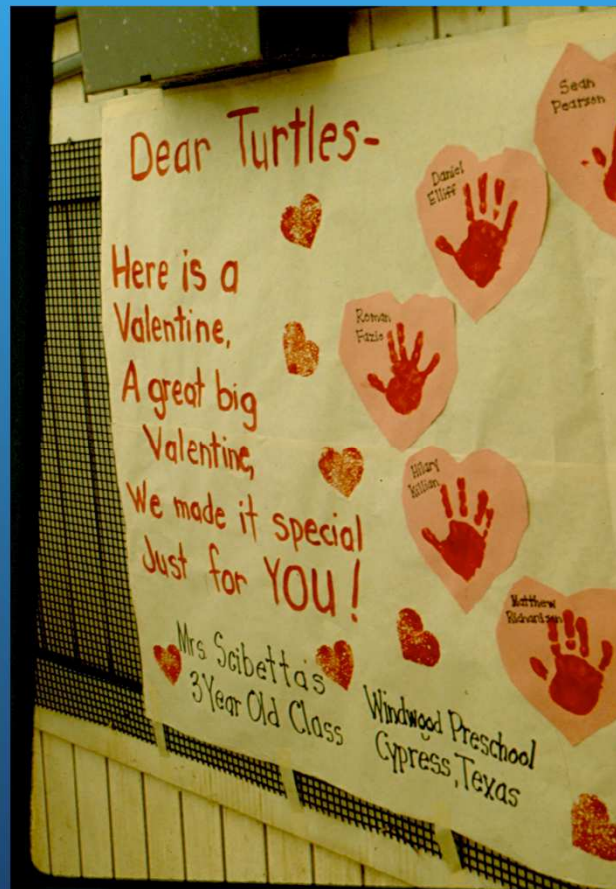 Dear Turtles-
Here is a
Valentine,
A great big
Valentine,
We made it special
Just for YOU!
Mrs Scibetta's
3 Year Old Class
Windwood Preschool
Cypress, Texas
Sean
Pearson
Daniel
Elliff
Roman
Fazio
Hilary
Killian
Matthew
Richardson